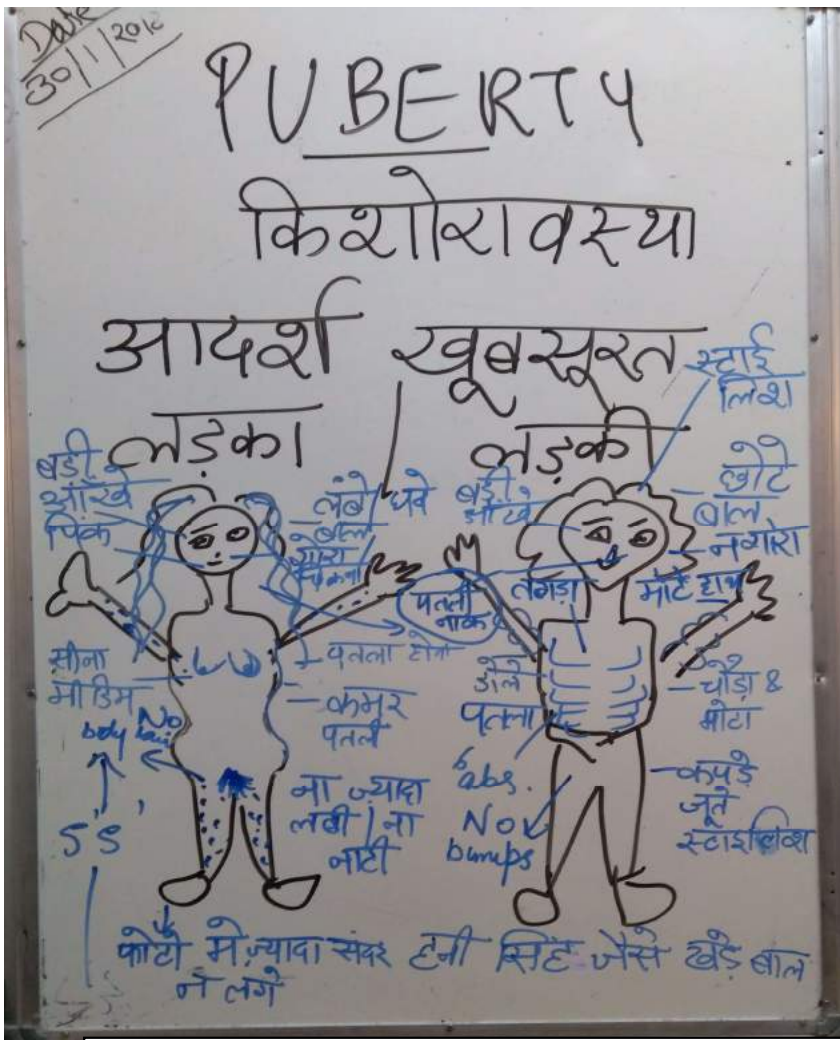 Date
30/1/2018
PUBERTY
किशोरावस्था
आदर्श / खूबसूरत
लड़का / लड़की
बड़ी
आँखे
पिंक
लंबे / घने
बाल
गोरा /
चिकना
पतला होना
सीना
मीडियम
कमर
पतली
No
body hair
5'5'
ना ज्यादा
लंबी / ना
नाटी
फोटो में ज्यादा सुंदर
न लगे
स्टाई
लिश
बड़ी
आँखे
छोटे
बाल
न गोरा
पतली
नाक
तगड़ा
मोटे हाथ
डोले
पतला
चौड़ा &
मोटा
6
abs.
No
bumps
कपड़े
जूते
स्टाइलिश
हनी सिंह जैसे खड़े बाल